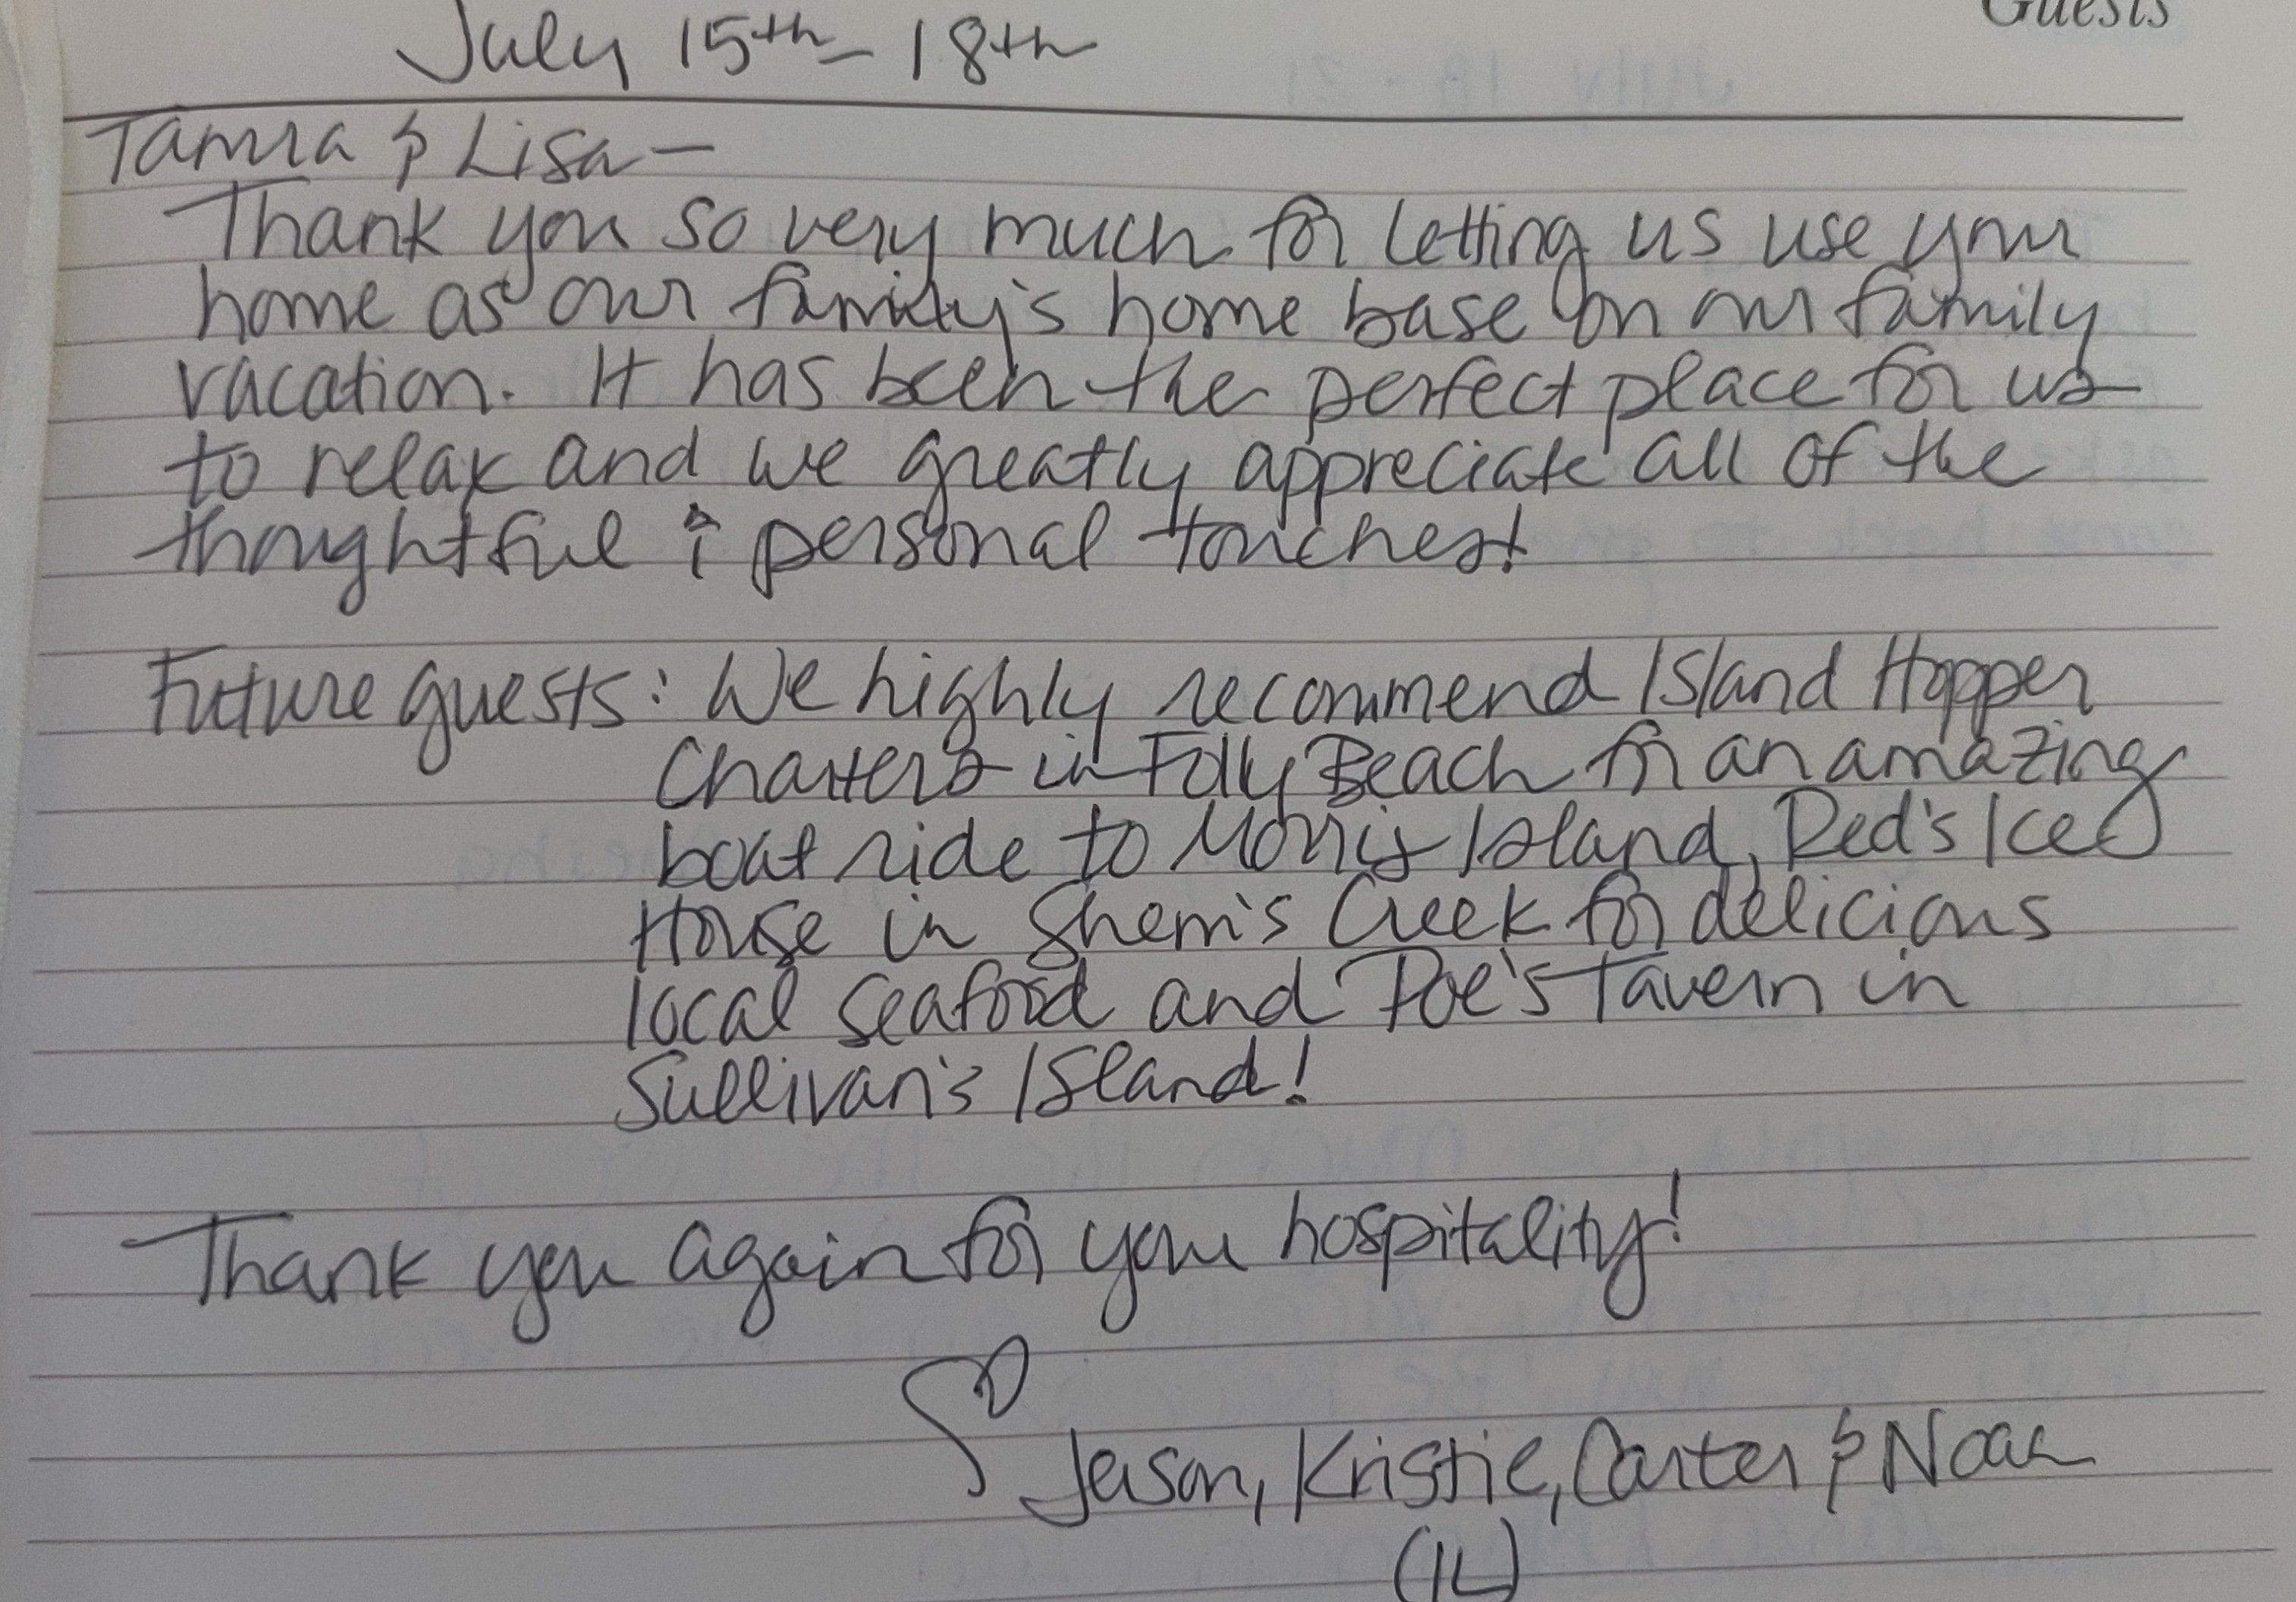 Guests
July 15th - 18th
Tamra & Lisa —
Thank you so very much for letting us use your
home as our family's home base on our family
vacation. It has been the perfect place for us
to relax and we greatly appreciate all of the
thoughtful & personal touches!
Future guests: We highly recommend Island Hopper
Charters in Folly Beach for an amazing
boat ride to Morris Island, Red's Ice
House in Shem's Creek for delicious
local seafood and Poe's Tavern in
Sullivan's Island!
Thank you again for your hospitality!
Jason, Kristie, Carter & Noah
(IL)